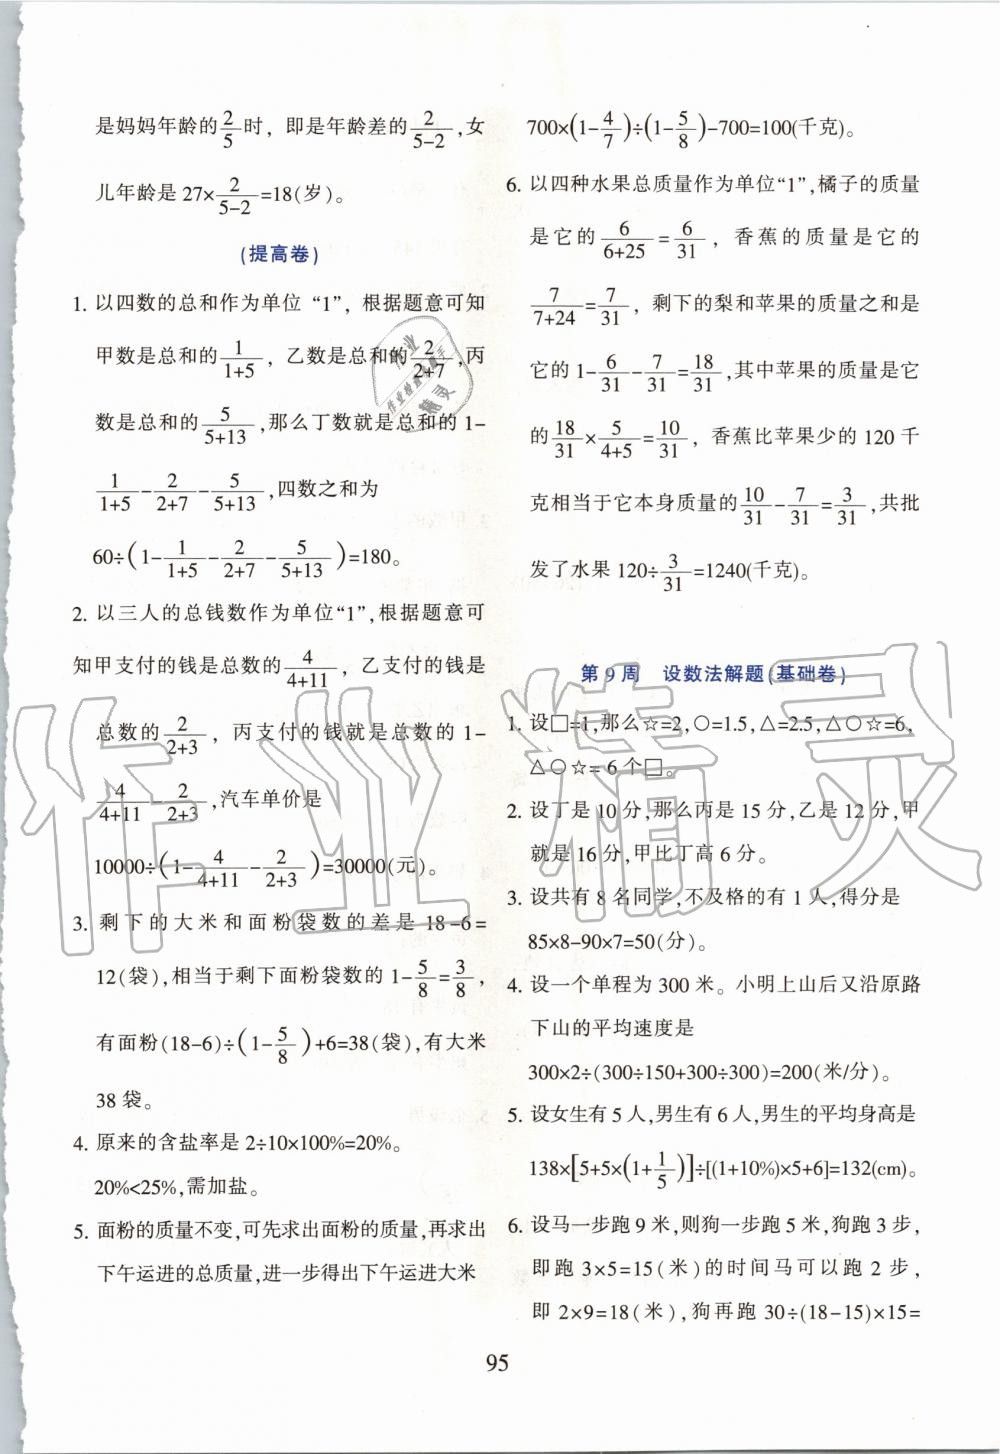 是妈妈年龄的2/5时，即是年龄差的2/(5-2),女
儿年龄是 27×2/(5-2)=18(岁)。
(提高卷)
1. 以四数的总和作为单位“1”，根据题意可知
甲数是总和的1/(1+5)，乙数是总和的2/(2+7),丙
数是总和的5/(5+13),那么丁数就是总和的 1-
1/(1+5)-2/(2+7)-5/(5+13),四数之和为
60÷(1-1/(1+5)-2/(2+7)-5/(5+13))=180。
2. 以三人的总钱数作为单位“1”,根据题意可
知甲支付的钱是总数的4/(4+11)，乙支付的钱是
总数的2/(2+3)，丙支付的钱就是总数的 1-
4/(4+11)-2/(2+3),汽车单价是
10000÷(1-4/(4+11)-2/(2+3))=30000(元)。
3. 剩下的大米和面粉袋数的差是 18-6=
12(袋),相当于剩下面粉袋数的 1-5/8=3/8,
有面粉(18-6)÷(1-5/8)+6=38(袋),有大米
38 袋。
4. 原来的含盐率是 2÷10×100%=20%。
20%<25%,需加盐。
5. 面粉的质量不变,可先求出面粉的质量,再求出
下午运进的总质量,进一步得出下午运进大米
700×(1-4/7)÷(1-5/8)-700=100(千克)。
6. 以四种水果总质量作为单位“1”,橘子的质量
是它的6/(6+25)=6/31，香蕉的质量是它的
7/(7+24)=7/31，剩下的梨和苹果的质量之和是
它的 1-6/31-7/31=18/31,其中苹果的质量是它
的18/31×5/(4+5)=10/31，香蕉比苹果少的 120 千
克相当于它本身质量的10/31-7/31=3/31,共批
发了水果 120÷3/31=1240(千克)。
第 9 周 设数法解题(基础卷)
1. 设□=1,那么☆=2,○=1.5,△=2.5,△○☆=6,
△○☆=6 个□。
2. 设丁是 10 分,那么丙是 15 分,乙是 12 分,甲
就是 16 分,甲比丁高 6 分。
3. 设共有 8 名同学,不及格的有 1 人,得分是
85×8-90×7=50(分)。
4. 设一个单程为 300 米。小明上山后又沿原路
下山的平均速度是
300×2÷(300÷150+300÷300)=200(米/分)。
5. 设女生有 5 人,男生有 6 人,男生的平均身高是
138×[5+5×(1+1/5)]÷[(1+10%)×5+6]=132(cm)。
6. 设马一步跑 9 米,则狗一步跑 5 米,狗跑 3 步,
即跑 3×5=15(米)的时间马可以跑 2 步,
即 2×9=18(米),狗再跑 30÷(18-15)×15=
95
作业精灵
作业
作业检查小帮手
精灵